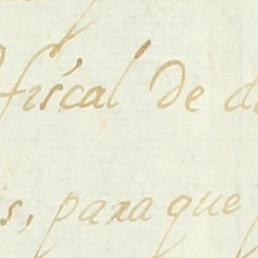 fiscal de
s, para que